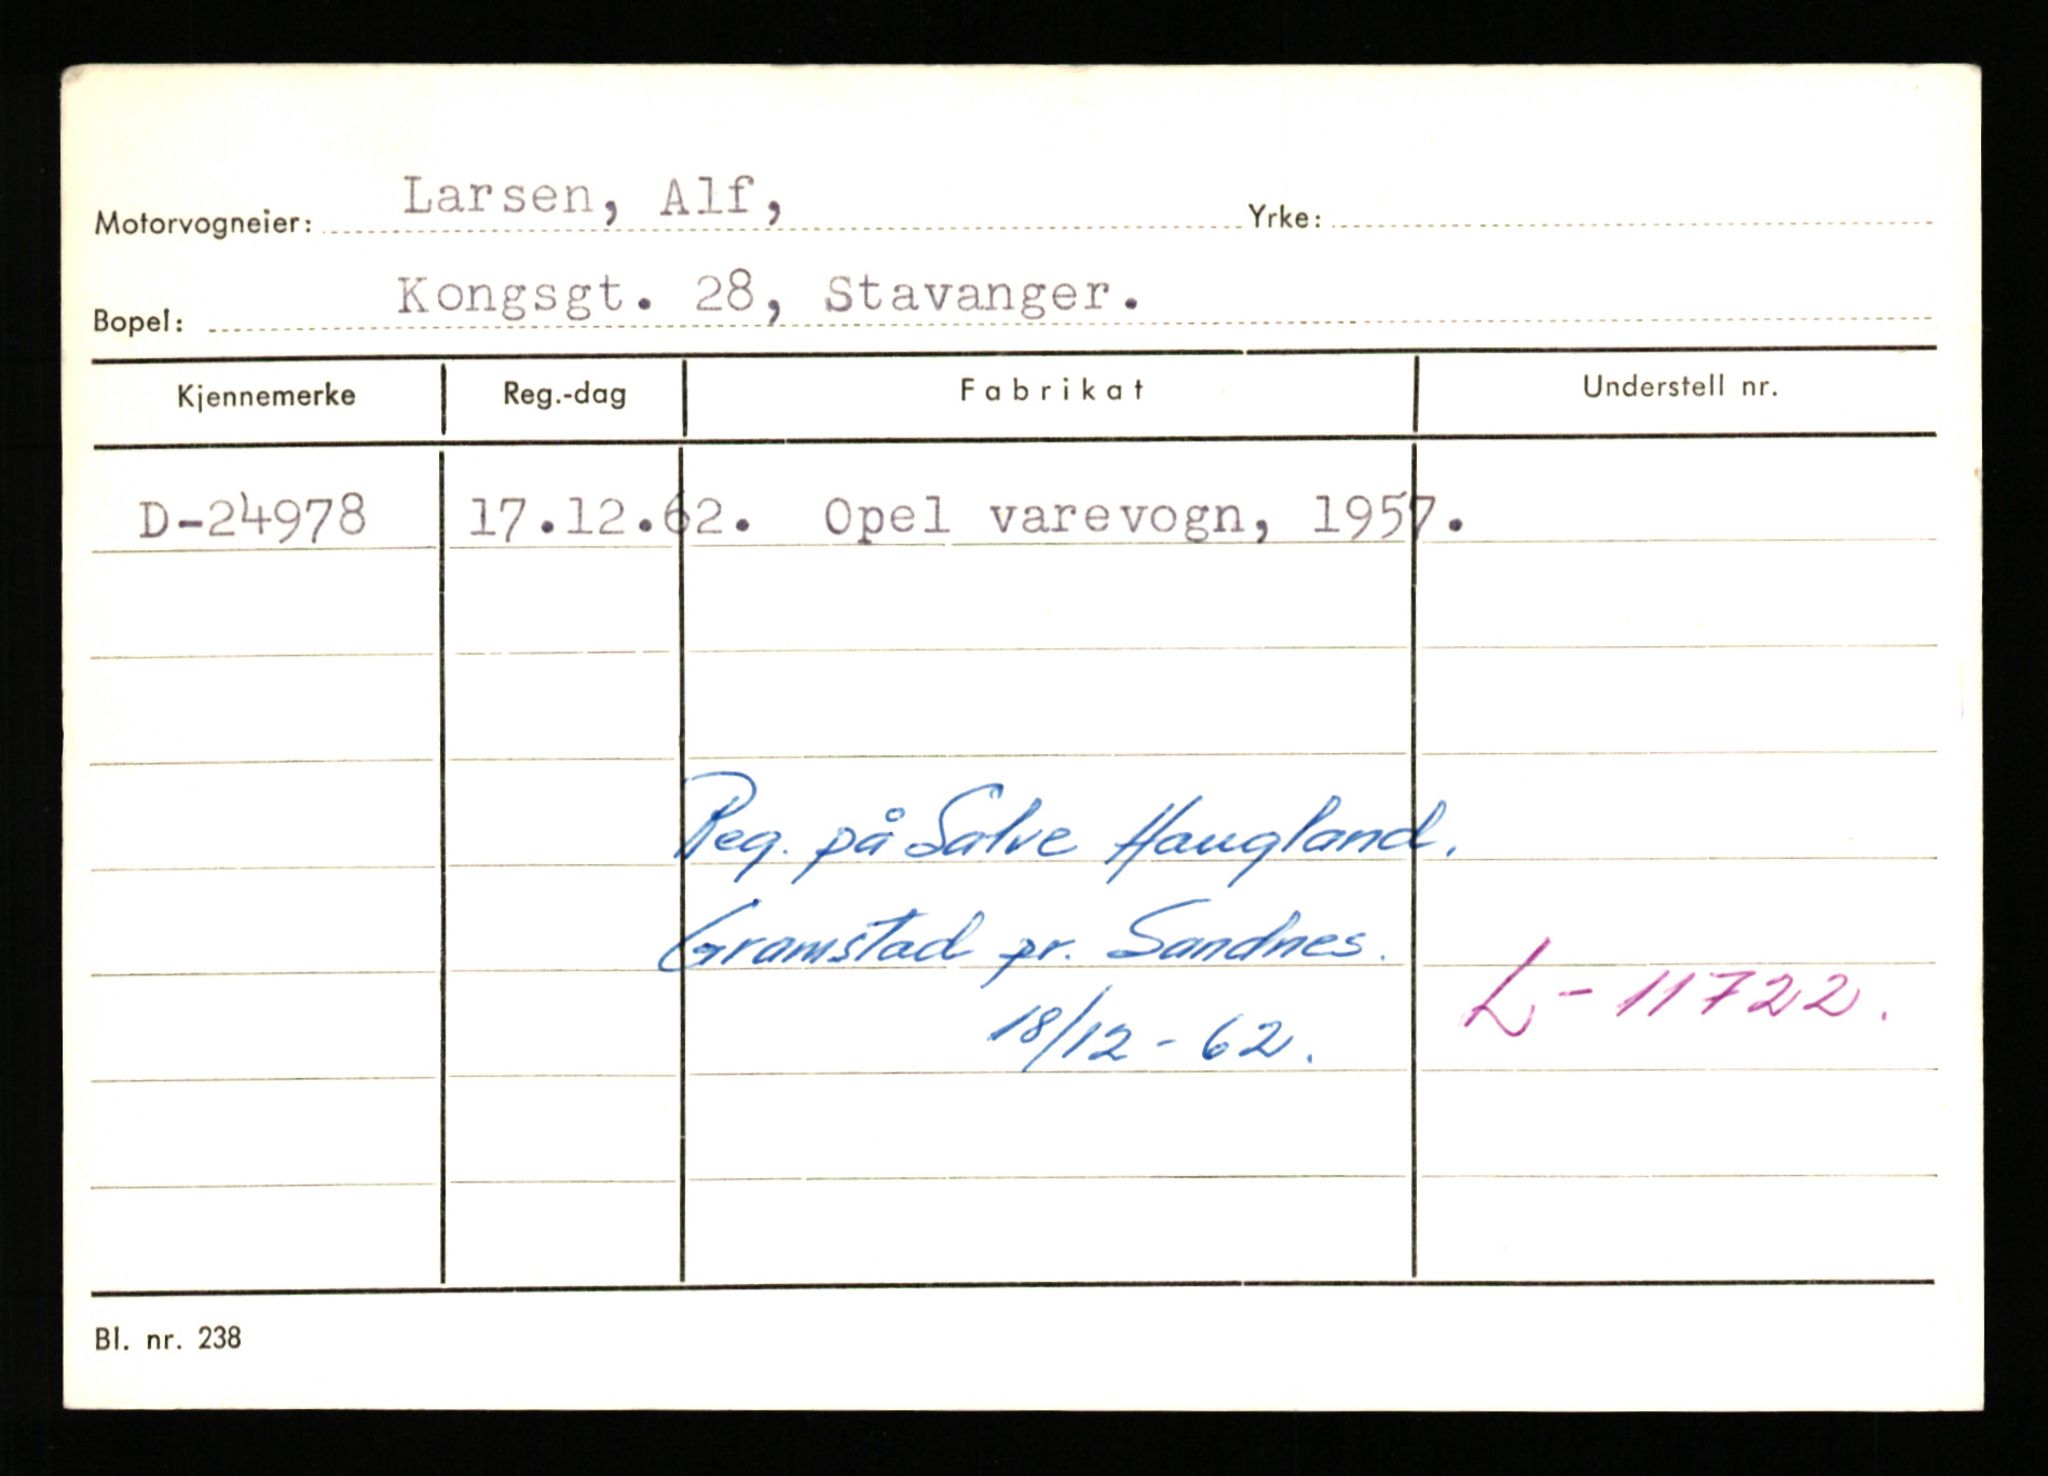 Motorvogneier: Larsen, Alf, Yrke:
Bopel: Kongsgt. 28, Stavanger.
Kjennemerke Reg.-dag Fabrikat Understell nr.
D-24978 17.12.62. Opel varevogn, 1957.
Reg. på Salve Haugland.
Gramstad pr. Sandnes.
L-11722.
18/12-62.
Bl. nr. 238